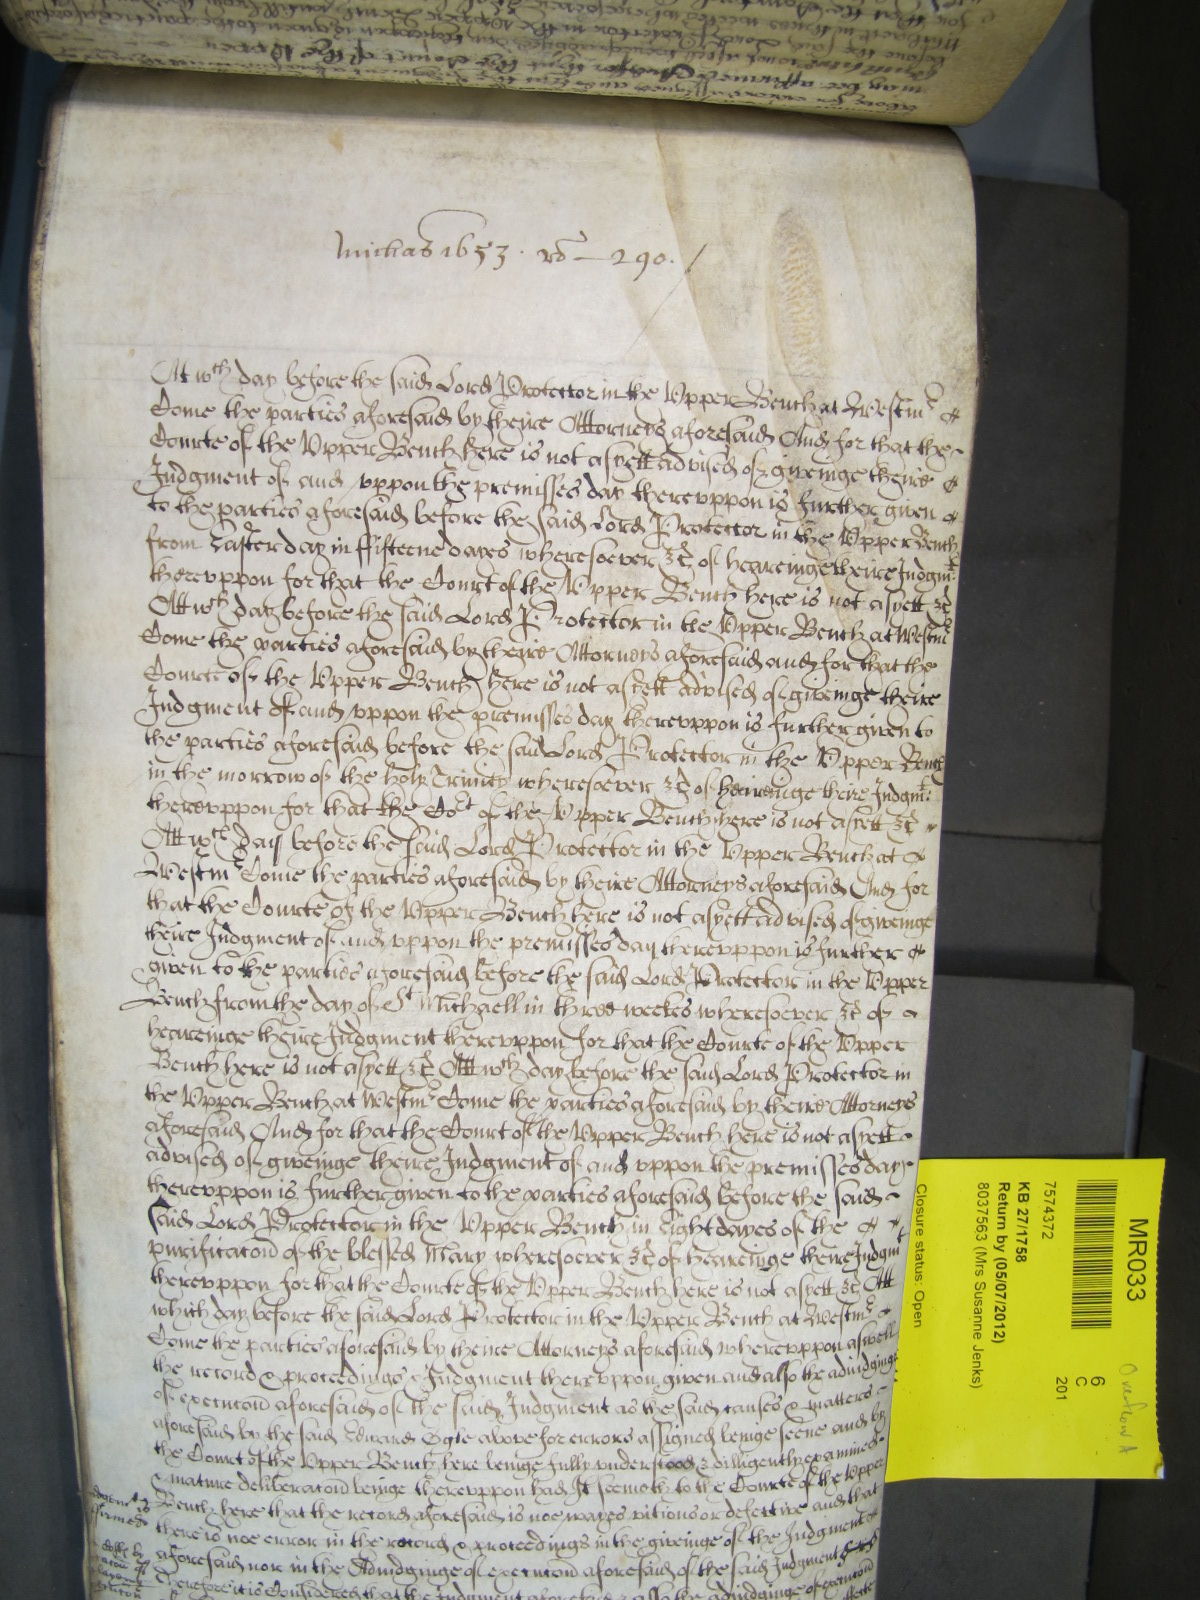 Michas 1653 · rd — 290 ·/
At wch day before the said Lord Protector in the Upper Bench at Westmr
Come the parties aforesaid by theire Attorneys aforesaid And for that the
Courte of the Upper Bench here is not as yett advised of giveinge theire
Judgment of and uppon the premisses day thereuppon is further given
to the parties aforesaid before the said Lord Protector in the Upper Bench
from Easter day in ffifteene dayes wheresoever &c of heareinge theire Judgmt
thereuppon for that the Court of the Upper Bench here is not as yett &c
Att wch day before the said Lord Protector in the Upper Bench at Westmr
Come the parties aforesaid by theire Attorneys aforesaid and for that the
Courte of the Upper Bench here is not as yett advised of giveinge theire
Judgment of and uppon the premisses day thereuppon is further given to
the parties aforesaid before the said Lord Protector in the Upper Bench
in the morrow of the holy Trinity wheresoever &c of heireinge theire Judgmt
thereuppon for that the Cort of the Upper Bench here is not as yett &c
Att wch day before the said Lord Protector in the Upper Bench at
Westmr Come the parties aforesaid by theire Attorneys aforesaid And for
that the Courte of the Upper Bench here is not as yett advised of giveinge
theire Judgment of and uppon the premisses day thereuppon is further
given to the parties aforesaid before the said Lord Protector in the Upper
Bench from the day of St Michaell in three weekes wheresoever &c of
heareinge theire Judgment thereuppon for that the Courte of the Upper
Bench here is not as yett &c Att wch day before the said Lord Protector in
the Upper Bench at Westmr Come the parties aforesaid by theire Attorneys
aforesaid And for that the Court of the Upper Bench here is not as yett
advised of giveinge theire Judgment of and uppon the premisses day
thereuppon is further given to the parties aforesaid before the said
said Lord Protector in the Upper Bench in Eight dayes of the
purificacon of the blessed Mary wheresoever &c of heareinge theire Judgmt
thereuppon for that the Courte of the Upper Bench here is not as yett &c Att
which day before the said Lord Protector in the Upper Bench at Westmr
Come the parties aforesaid by theire Attorneys aforesaid whereuppon aswell
the record & proceedings & Judgment thereuppon given and also the adiudginge
of execucon aforesaid of the said Judgment as the said causes & matters
aforesaid by the said Edward Ogle above for errors assigned beinge seene and by
the Court of the Upper Bench here beinge fully understood & dilligently examined
& mature deliberacon beinge thereuppon had It seemeth to the Courte of the Upper
Bench here that the record aforesaid is noe wayes vitious or defective and that
there is noe error in the record & proceedings in the giveinge of the Judgment
aforesaid nor in the Adiudginge of execucon aforesaid of the said Judgment
Therefore it is Considered that the Judgment aforesaid & also the adiudginge of execucon
MR033
6
C
201
7574372
KB 27/1758
Return by (05/07/2012)
8037563 (Mrs Susanne Jenks)
Closure status: Open
Overflow A